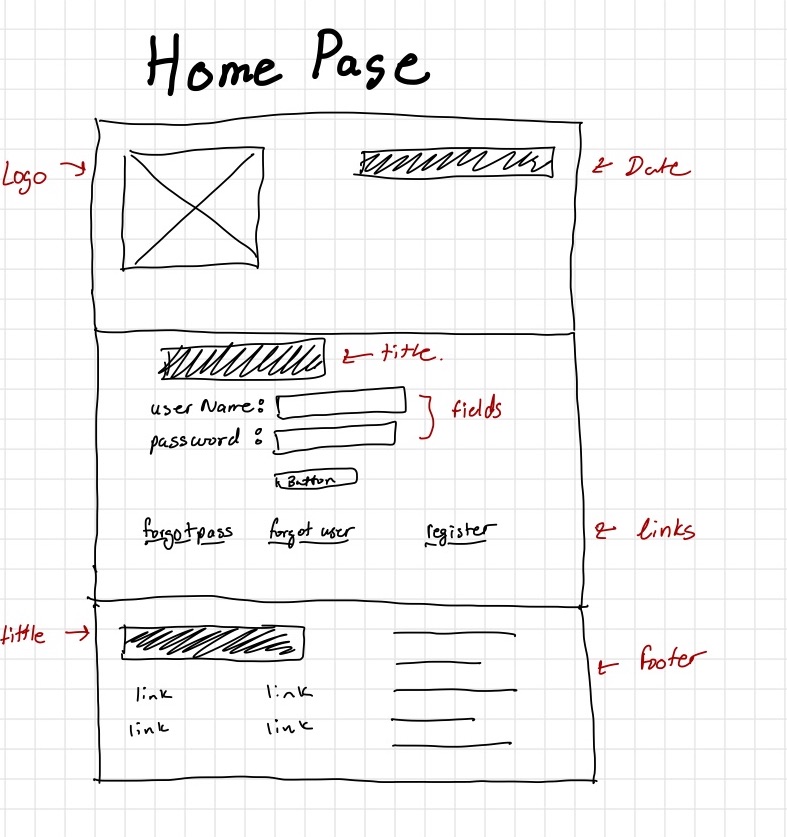 Home Page
Logo
Date
title.
userName:
fields
password :
Button
forgotpass forgot user register
links
tittle
footer
link link
link link